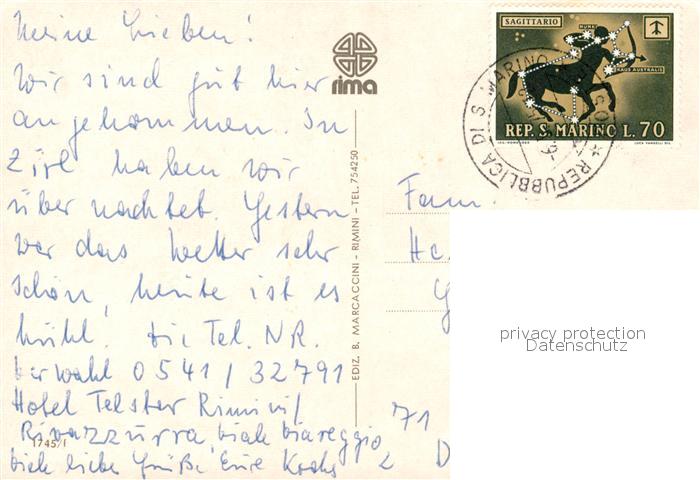 Meine Lieben!
Wir sind gut hier
angekommen. In
Zirl haben wir
übernachtet. Gestern
war das Wetter sehr
schön, heute ist es
kühl. Die Tel. NR.
Vorwahl 0541/32791
Hotel Telstar Rimini/
Rivazzurra, viale Biareggio,
viele liebe Grüße Eure
rima
EDIZ. B. MARCACCINI - RIMINI - TEL. 754250
1745/I
SAGITTARIO
KAUS AUSTRALIS
REP. S. MARINO L. 70
REPUBBLICA DI S. MARINO
Fam.
Ha
G
71
2
D
privacy protection
Datenschutz